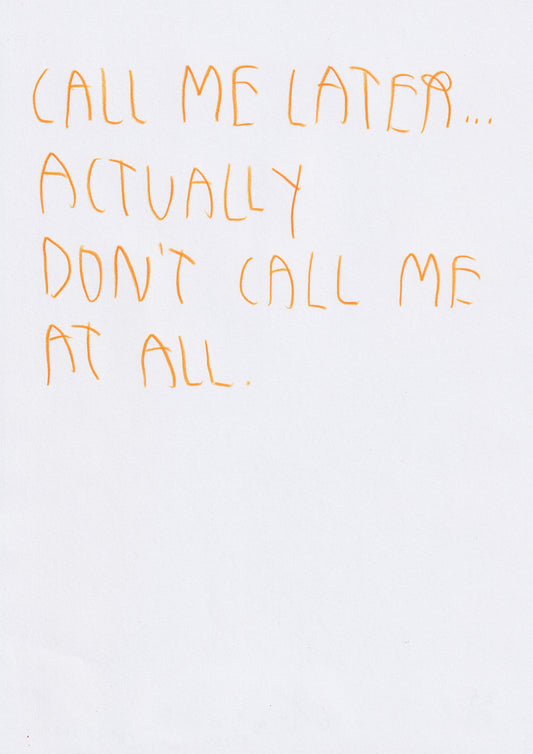 CALL ME LATER...
ACTUALLY
DON'T CALL ME
AT ALL.